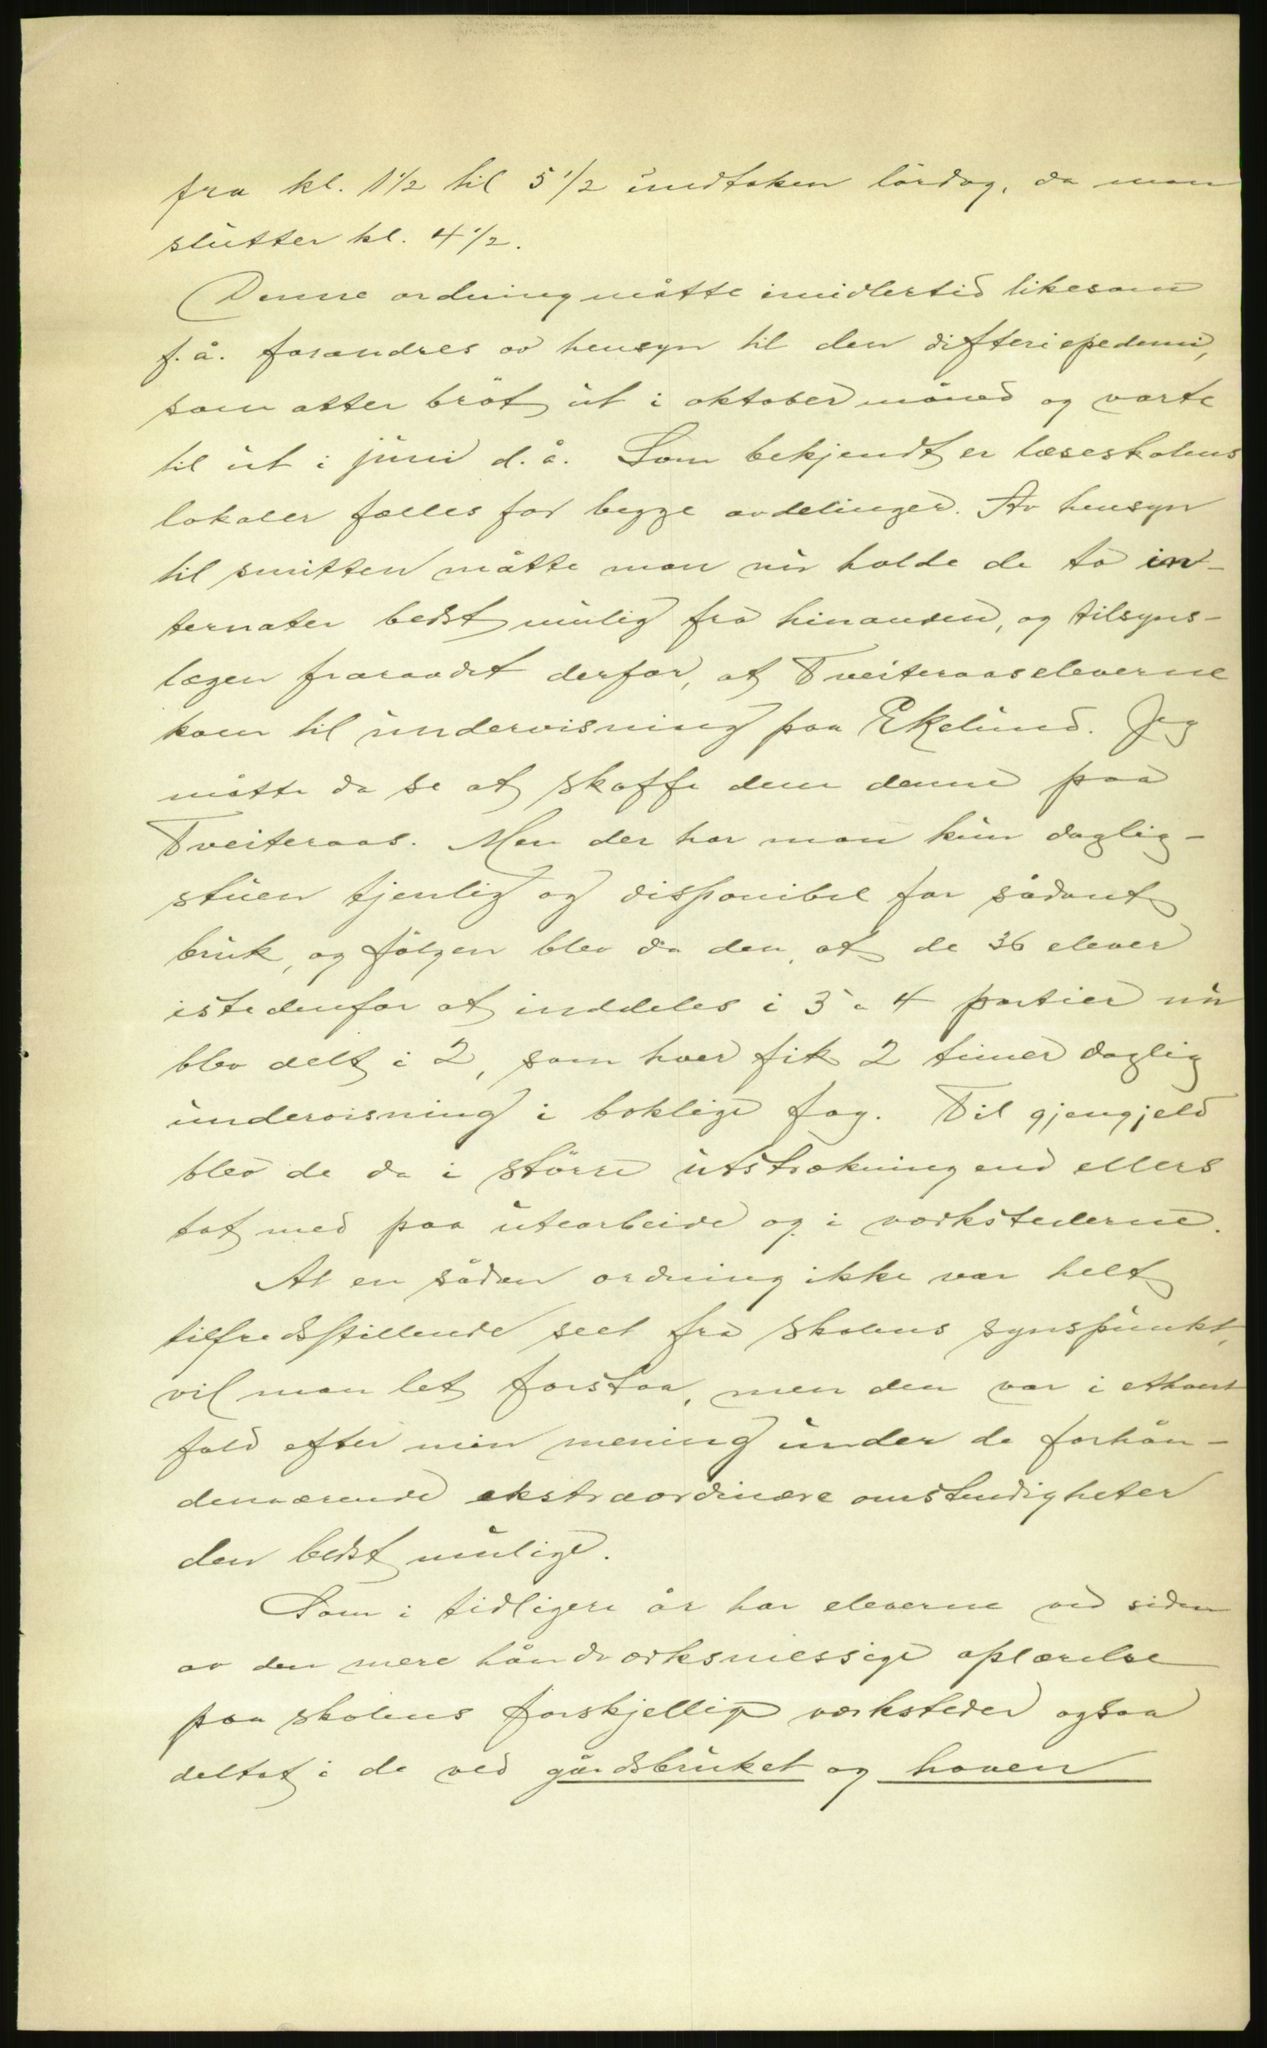 fra kl. 1½ til 5½ undtaken lördag, da man
slutter kl. 4½.
Denne ordning måtte imidlertid likesom
f.å. forandres av hensyn til den difteriepedemi,
som atter bröt ut i oktober måned og varte
til ut i juni d.å. Som bekjendt er læseskolens
lokaler fælles for begge avdelinger. Av hensyn
til smitten måtte man nu holde de to in-
ternater bedst mulig fra hinanden, og tilsyns-
lægen fraraadet derfor, at Tveiteraaseleverne
kom til undervisning paa Ekelund. Jeg
måtte da se at skaffe dem denne paa
Tveiteraas. Men der har man kun daglig-
stuen tjenlig og disponibel for sådant
bruk, og fölgen blev da den, at de 36 elever
istedenfor at inddeles i 3 a 4 partier nu
blev delt i 2, som hver fik 2 timer daglig
undervisning i boklige fag. Til gjengjeld
blev de da i större utstrækning end ellers
tat med paa utearbeide og i verkstederne.
At en sådan ordning ikke var helt
tilfredsstillende seet fra skolens synspunkt,
vil man let forstaa, men den var i ethvert
fald efter min mening under de forhån-
denværende ekstraordinære omstendigheter
den bedst mulige.
Som i tidligere år har eleverne ved siden
av den mere håndverksmessige oplærelse
paa skolens forskjellige verksteder ogsaa
deltat i de ved gårdsbruket og haven